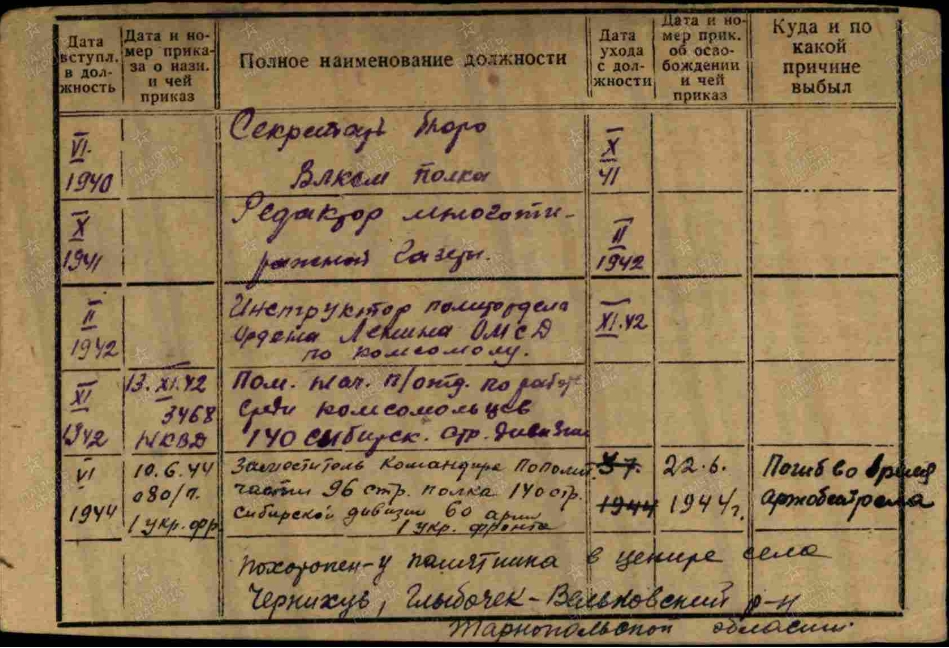 Дата вступл. в должность
Дата и номер приказа о назн. и чей приказ
Полное наименование должности
Дата ухода с должности
Дата и номер прик. об освобождении и чей приказ
Куда и по какой причине выбыл
VI. 1940
Секретарь бюро
ВЛКСМ полка
X 41
X 1941
Редактор многоти-
ражной газеты.
II 1942
II 1942
Инструктор политотдела
Ордена Ленина ОМСД
по комсомолу.
XI.42
XI 1942
13.XI.42
3468
НКВД
Пом. нач. п/отд. по работе
среди комсомольцев
140 сибирск. стр. дивизии
VI 1944
10.6.44
080/п.
1 укр. фр
Заместитель командира по полит
части 96 стр. полка 140 стр.
сибирской дивизии 60 арм
1 укр. фронта
1944
22.6.
1944г.
Погиб во время
артобстрела
похоронен-у памятника в центре села
Чернихув, Глыбочек-Вельковский р-н
Тарнопольской области.